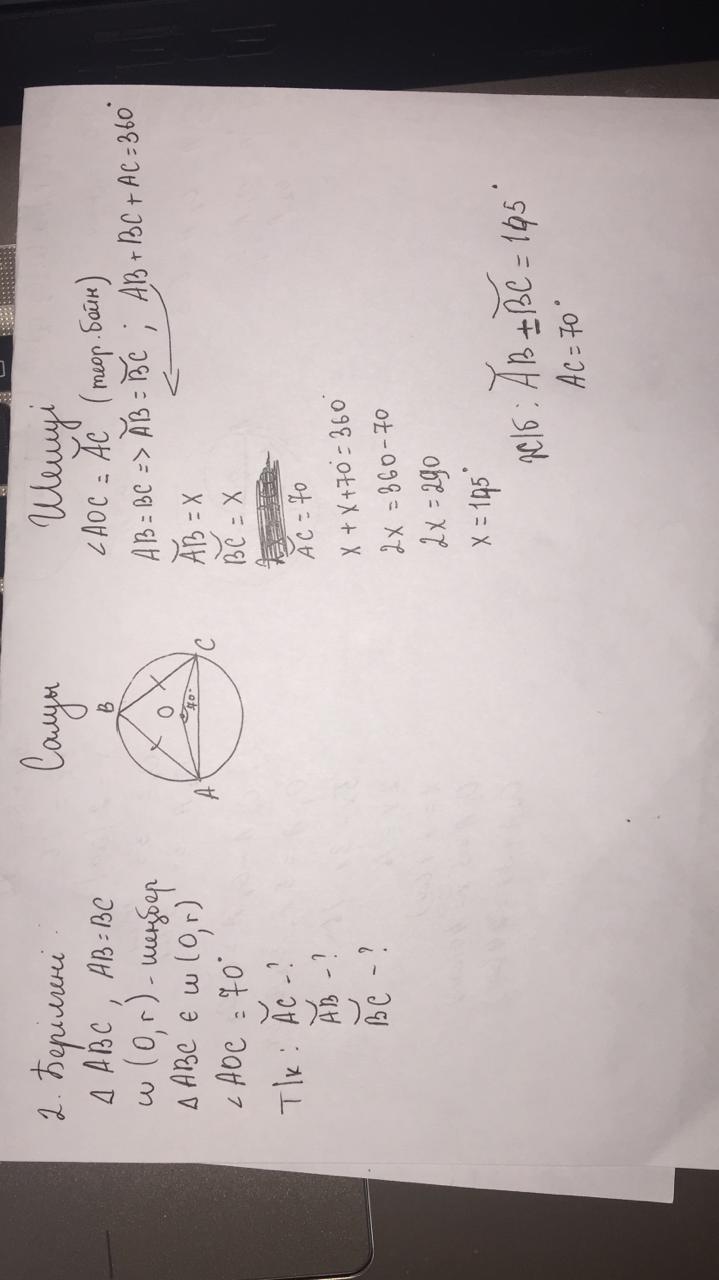 2. Берілгені
Δ ABC, AB=BC
w(O,r) - шеңбер
Δ ABC ∈ w(O,r)
∠AOC = 70°
Т/к: A͡C -?
A͡B -?
B͡C -?
Салуы
B
O
70°
A
C
Шешуі
∠AOC = A͡C (теор. байн)
AB=BC => A͡B = B͡C ; AB+BC+AC=360°
A͡B = x
B͡C = x
A͡C = 70
x+x+70°=360°
2x=360-70
2x=290
x=145°
Ж/б: A͡B ± B͡C = 145°
AC=70°